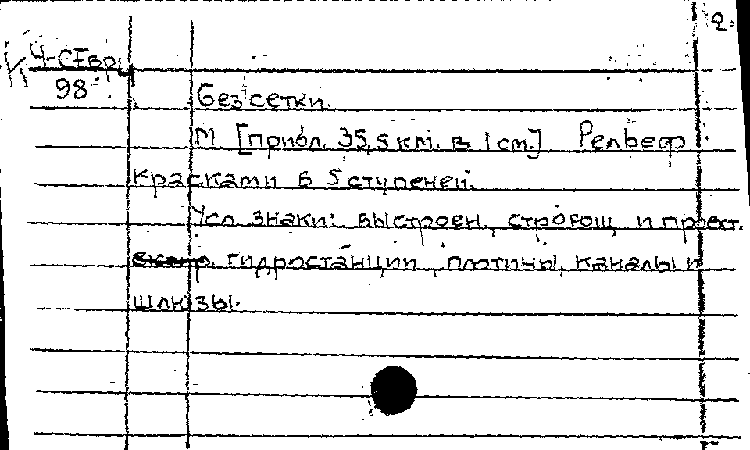 2.
Ч-СГвр
98
Без сетки.
М [прибл. 35,5 км. в 1 см.] Рельеф
красками в 5 ступеней.
Усл. знаки: выстроен., строющ. и проект.
гидростанции, плотины, каналы и
шлюзы.